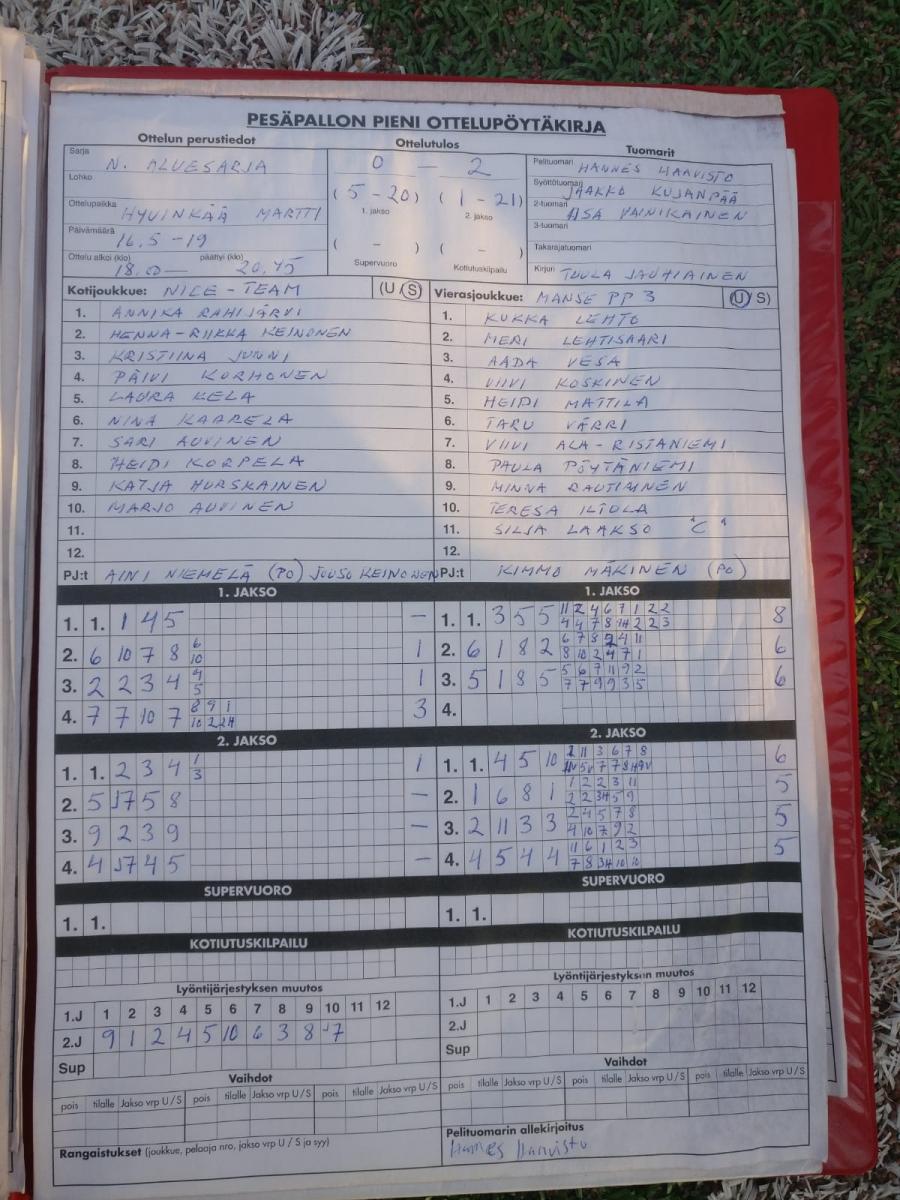 PESÄPALLON PIENI OTTELUPÖYTÄKIRJA
Ottelun perustiedot
Ottelutulos
Tuomarit
Sarja N. ALUESARJA
0 - 2
Pelituomari HANNES HAAVISTO
Lohko
Syöttötuomari JAAKKO KUJANPÄÄ
(5-20) (1-21)
1. jakso 2. jakso
2-tuomari ASA VAINIKAINEN
Ottelupaikka HYVINKÄÄ MARTTI
3-tuomari
Päivämäärä 16.5-19
Takarajatuomari
( - ) ( - )
Supervuoro Kotiutuskilpailu
Ottelu alkoi (klo) päättyi (klo)
18.00— 20.45
Kirjuri TUULA JAUHIAINEN
Kotijoukkue: NICE-TEAM (U / S)
1. ANNIKA RAHIJÄRVI
2. HENNA-RIIKKA KEINONEN
3. KRISTIINA JUNNI
4. PÄIVI KORHONEN
5. LAURA KELA
6. NINA KAARELA
7. SARI AUVINEN
8. HEIDI KORPELA
9. KATJA HURSKAINEN
10. MARJO AUVINEN
11.
12.
PJ:t AINI NIEMELÄ (PO) JUUSO KEINONEN
Vierasjoukkue: MANSE PP 3 (U / S)
1. KUKKA LEHTO
2. MERI LEHTISAARI
3. AADA VESA
4. VIIVI KOSKINEN
5. HEIDI MATTILA
6. TARU VÄRRI
7. VIIVI ALA-RISTANIEMI
8. PAULA PÖYTÄNIEMI
9. MINNA RAUTIAINEN
10. TERESA ILTOLA
11. SILJA LAAKSO "C"
12.
PJ:t KIMMO MÄKINEN (PO)
1. JAKSO
1. 1. 1 4 5 -
2. 6 10 7 8 6 1
10
3. 2 2 3 4 4 1
5
4. 7 7 10 7 8 9 1 3
10 2 2H
2. JAKSO
1. 1. 2 3 4 1 1
3
2. 5 J7 5 8 -
3. 9 2 3 9 -
4. 4 J7 4 5 -
SUPERVUORO
1. 1.
KOTIUTUSKILPAILU
1. JAKSO
1. 1. 3 5 5 11 2 4 6 7 1 2 2 8
4 4 7 8 1H 2 2 3
2. 6 1 8 2 6 7 8 2 4 11 6
8 10 2 4 7 1
3. 5 1 8 5 5 6 7 11 9 2 6
7 7 9 9 3 5
4.
2. JAKSO
1. 1. 4 5 10 2 11 3 6 7 8 6
2. 1 6 8 1 1 2 2 3 11 5
2 2 3H 5 9
3. 2 11 3 3 2 4 5 7 8 5
4 10 7 9 2
4. 4 5 4 4 11 6 1 2 3 5
7 8 3H 10 10
SUPERVUORO
1. 1.
KOTIUTUSKILPAILU
Lyöntijärjestyksen muutos
1.J 1 2 3 4 5 6 7 8 9 10 11 12
2.J 9 1 2 4 5 10 6 3 8 7
Sup
Lyöntijärjestyksen muutos
1.J 1 2 3 4 5 6 7 8 9 10 11 12
2.J
Sup
Vaihdot
pois tilalle Jakso vrp U / S pois tilalle Jakso vrp U / S pois tilalle Jakso vrp U / S
Vaihdot
pois tilalle Jakso vrp U / S pois tilalle Jakso vrp U / S pois tilalle Jakso vrp U / S
Rangaistukset (joukkue, pelaaja nro, jakso vrp U / S ja syy)
Pelituomarin allekirjoitus
Hannes Haavisto